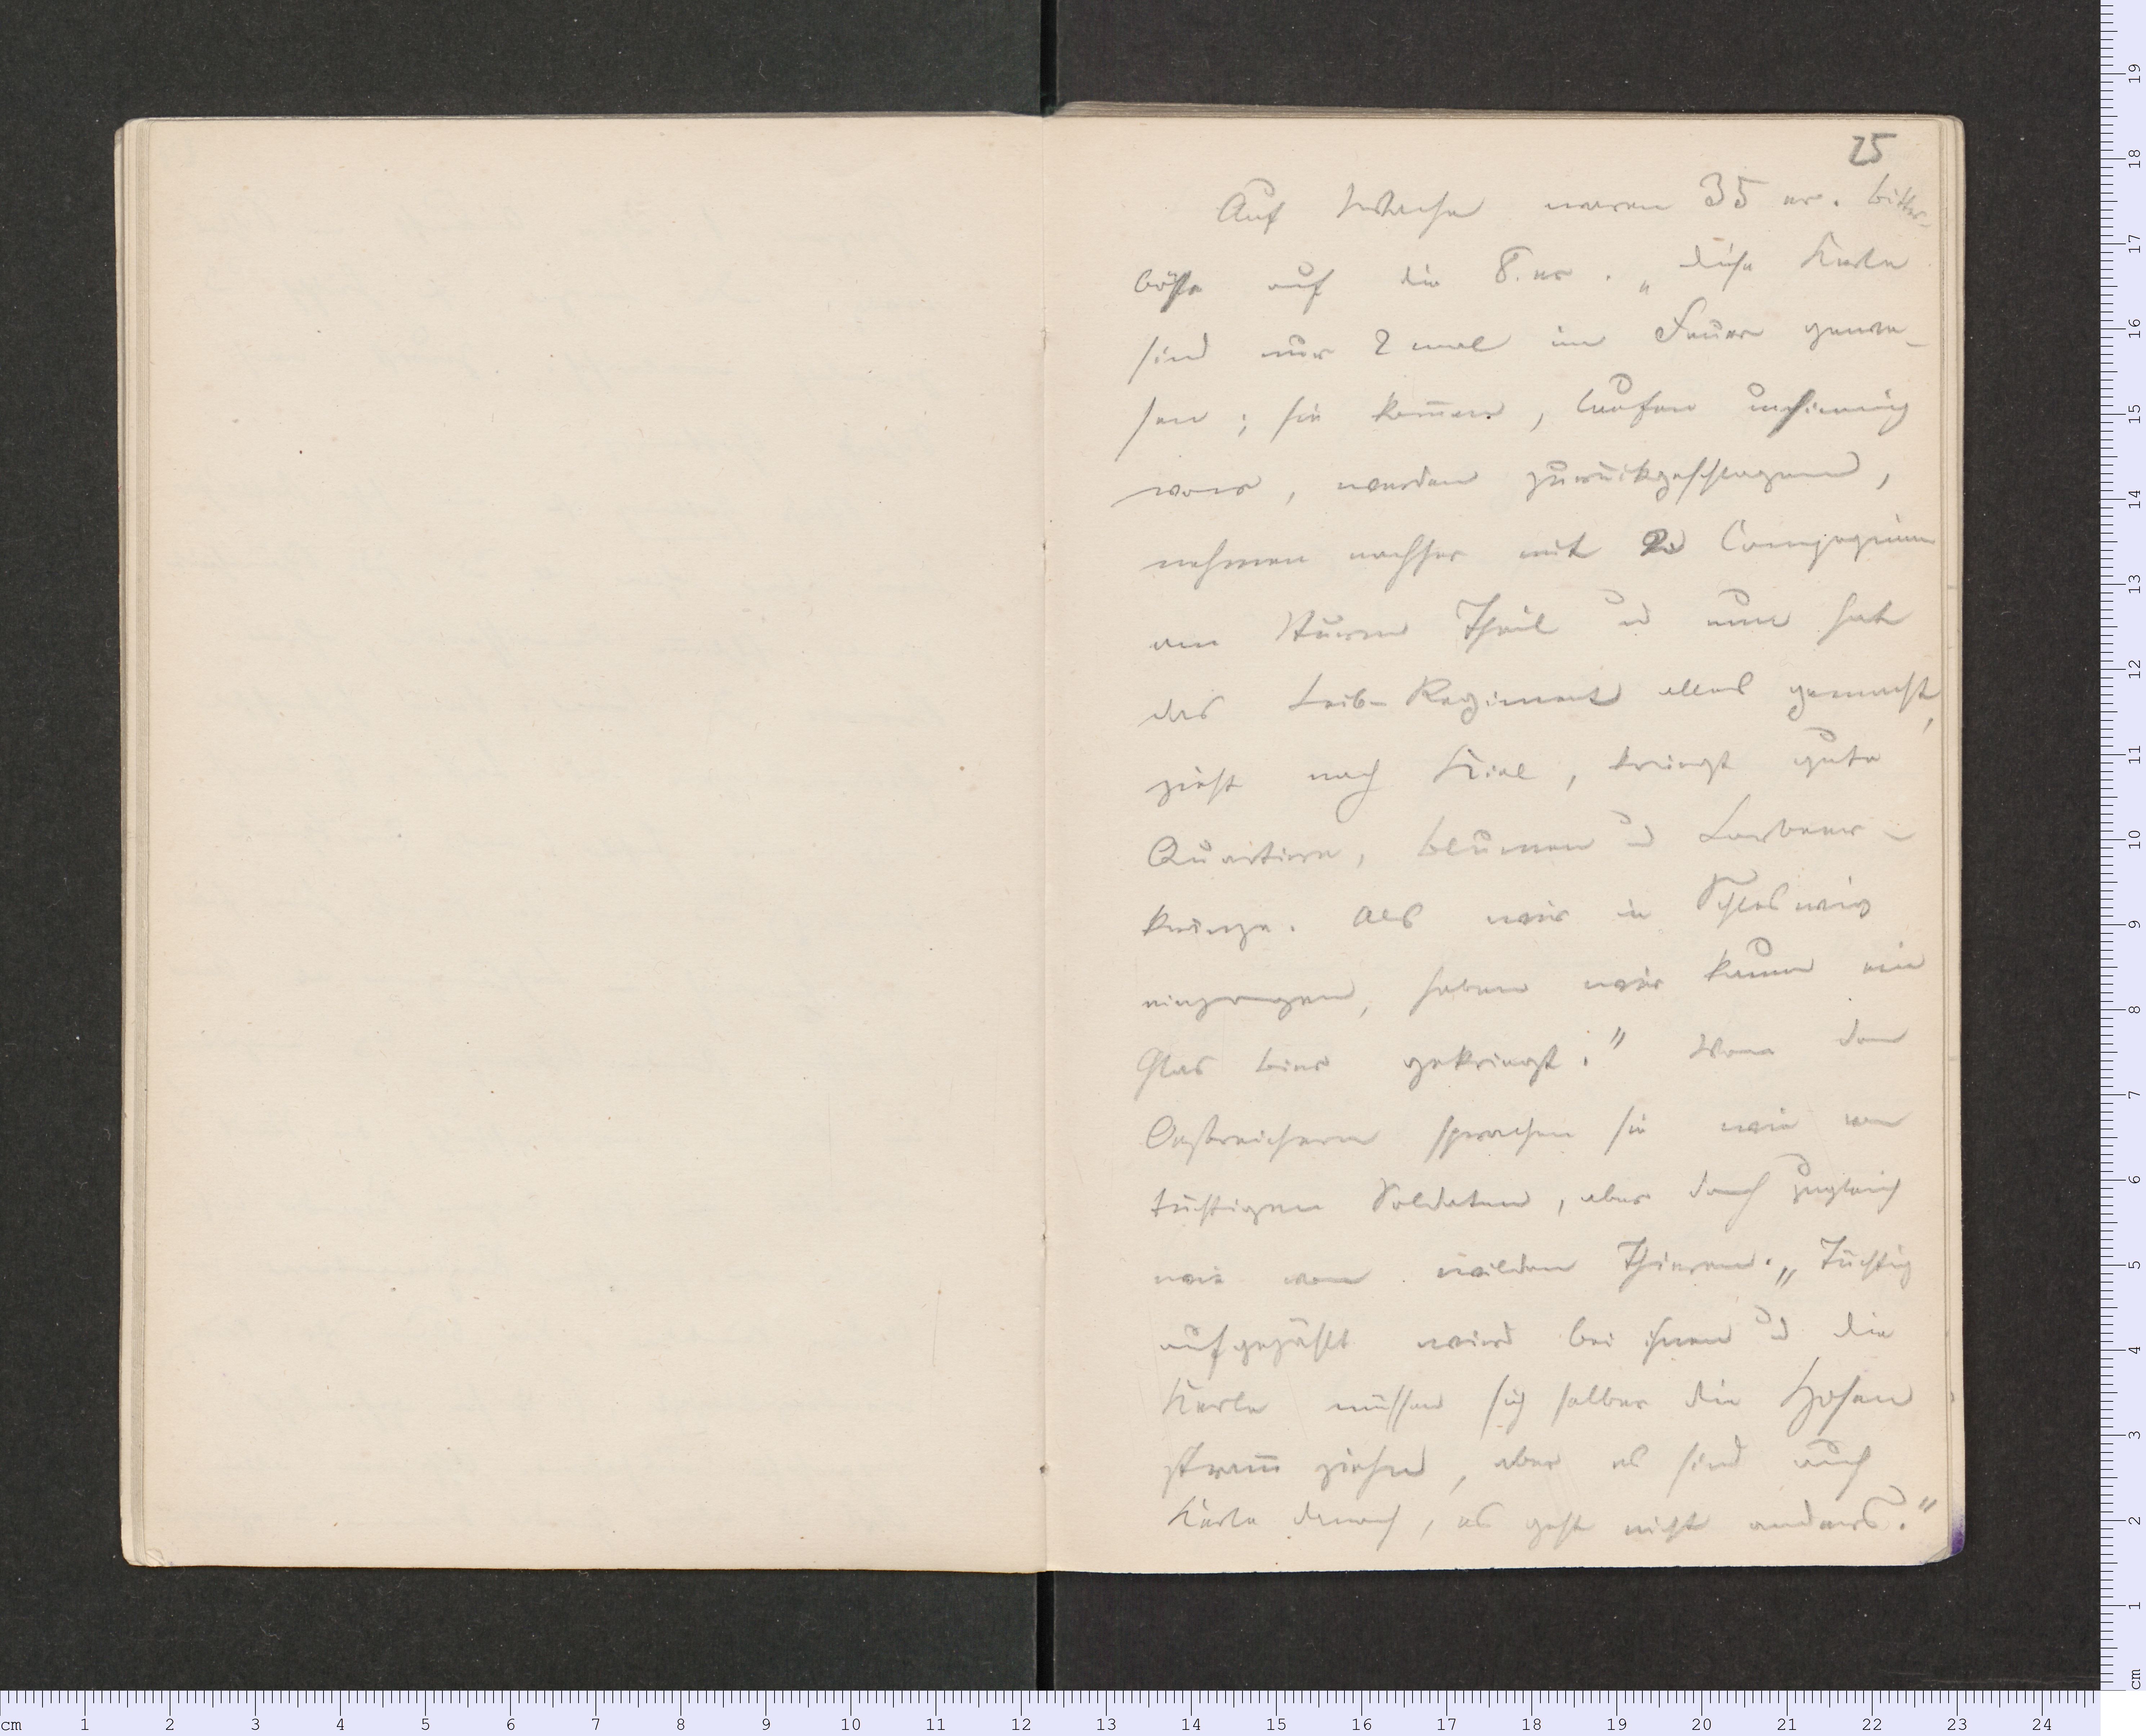 25
Auf Wache waren 35 er. bitter-
böse auf die 8.er. „diese Kerle
sind nur 2 mal im Feuer gewe-
sen; sie kom̄en, laufen unsinnig
vor, werden zurückgeschlagen,
nehmen nachher mit 2 Compagnien
am Sturm Theil u nun hat
das Leib-Regiment alles gemacht,
zieht nach Kiel, kriegt gute
Quartiere, Blumen u Lorbeer-
kränze. Als wir in Schleswig
einzogen, haben wir kaum ein
Glas Bier gekriegt." Von den
Oestreichern sprachen sie wie von
tüchtigen Soldaten, aber doch zugleich
wie von wilden Thieren. „Tüchtig
aufgezählt wird bei ihnen u die
Kerle müssen sich selber die Hosen
stram̄ ziehen, aber es sind auch
Kerle danach, es geht nicht anders."